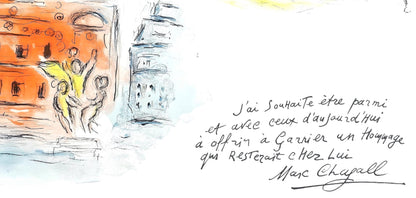 J'ai souhaité être parmi
et avec ceux d'aujourd'hui
à offrir à Garnier un Hommage
qui resterait chez lui
Marc Chagall